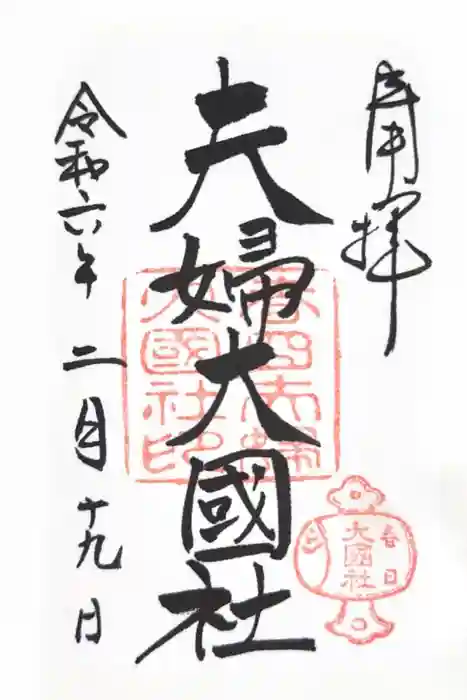 奉拝
夫婦大國社
春日夫婦
大國社印
春日
大國社
令和六年二月十九日